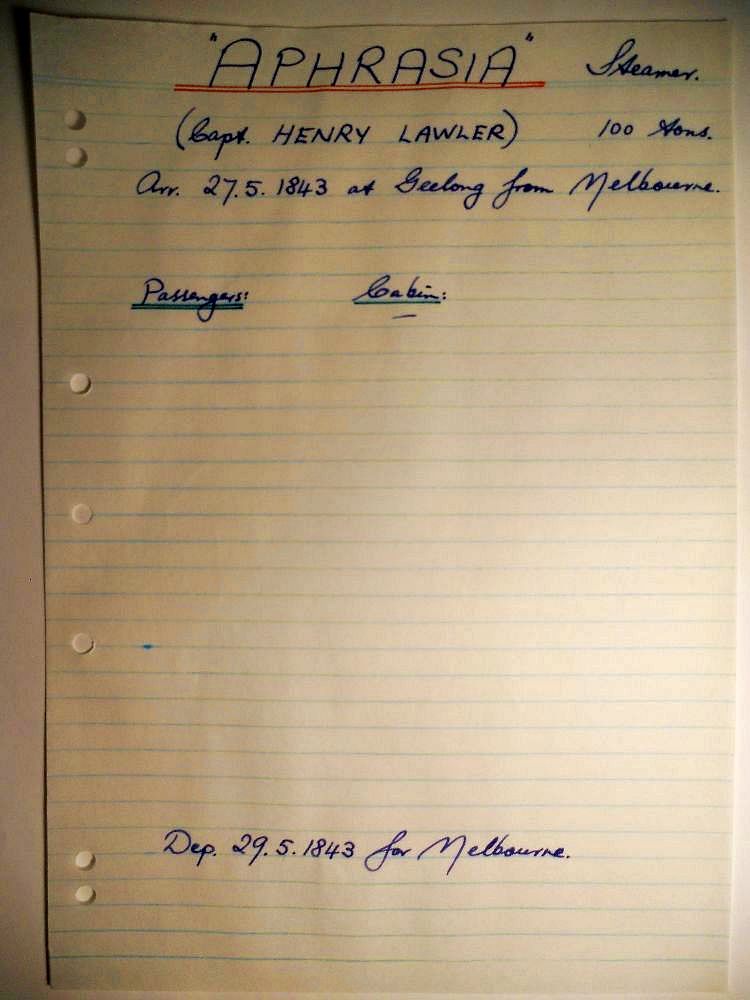 "APHRASIA" Steamer.
(Capt. HENRY LAWLER) 100 tons.
Arr. 27.5.1843 at Geelong from Melbourne.
Passengers: Cabin:
—
Dep. 29.5.1843 for Melbourne.